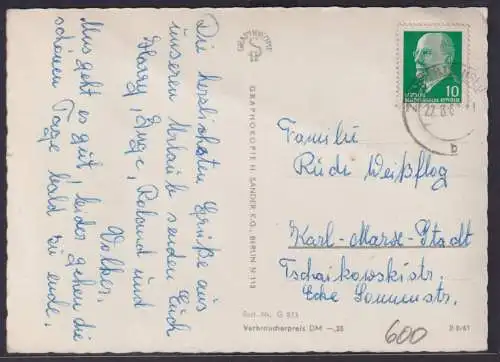 Die herzlichsten Grüße aus
unserem Urlaub senden Euch
Harry, Inge, Roland und
Volker.
Uns geht es gut, leider gehen die
schönen Tage bald zu ende.
GRAPHOKOPIE
GRAPHOKOPIE H. SANDER K.G., BERLIN N 113
10
DEUTSCHE DEMOKRATISCHE REPUBLIK
b
Familie
Rudi Weißflog
Karl-Marx-Stadt
Tschaikowskistr.
Ecke Sonnenstr.
Best.-Nr. G 813
Verbraucherpreis DM —,25
600